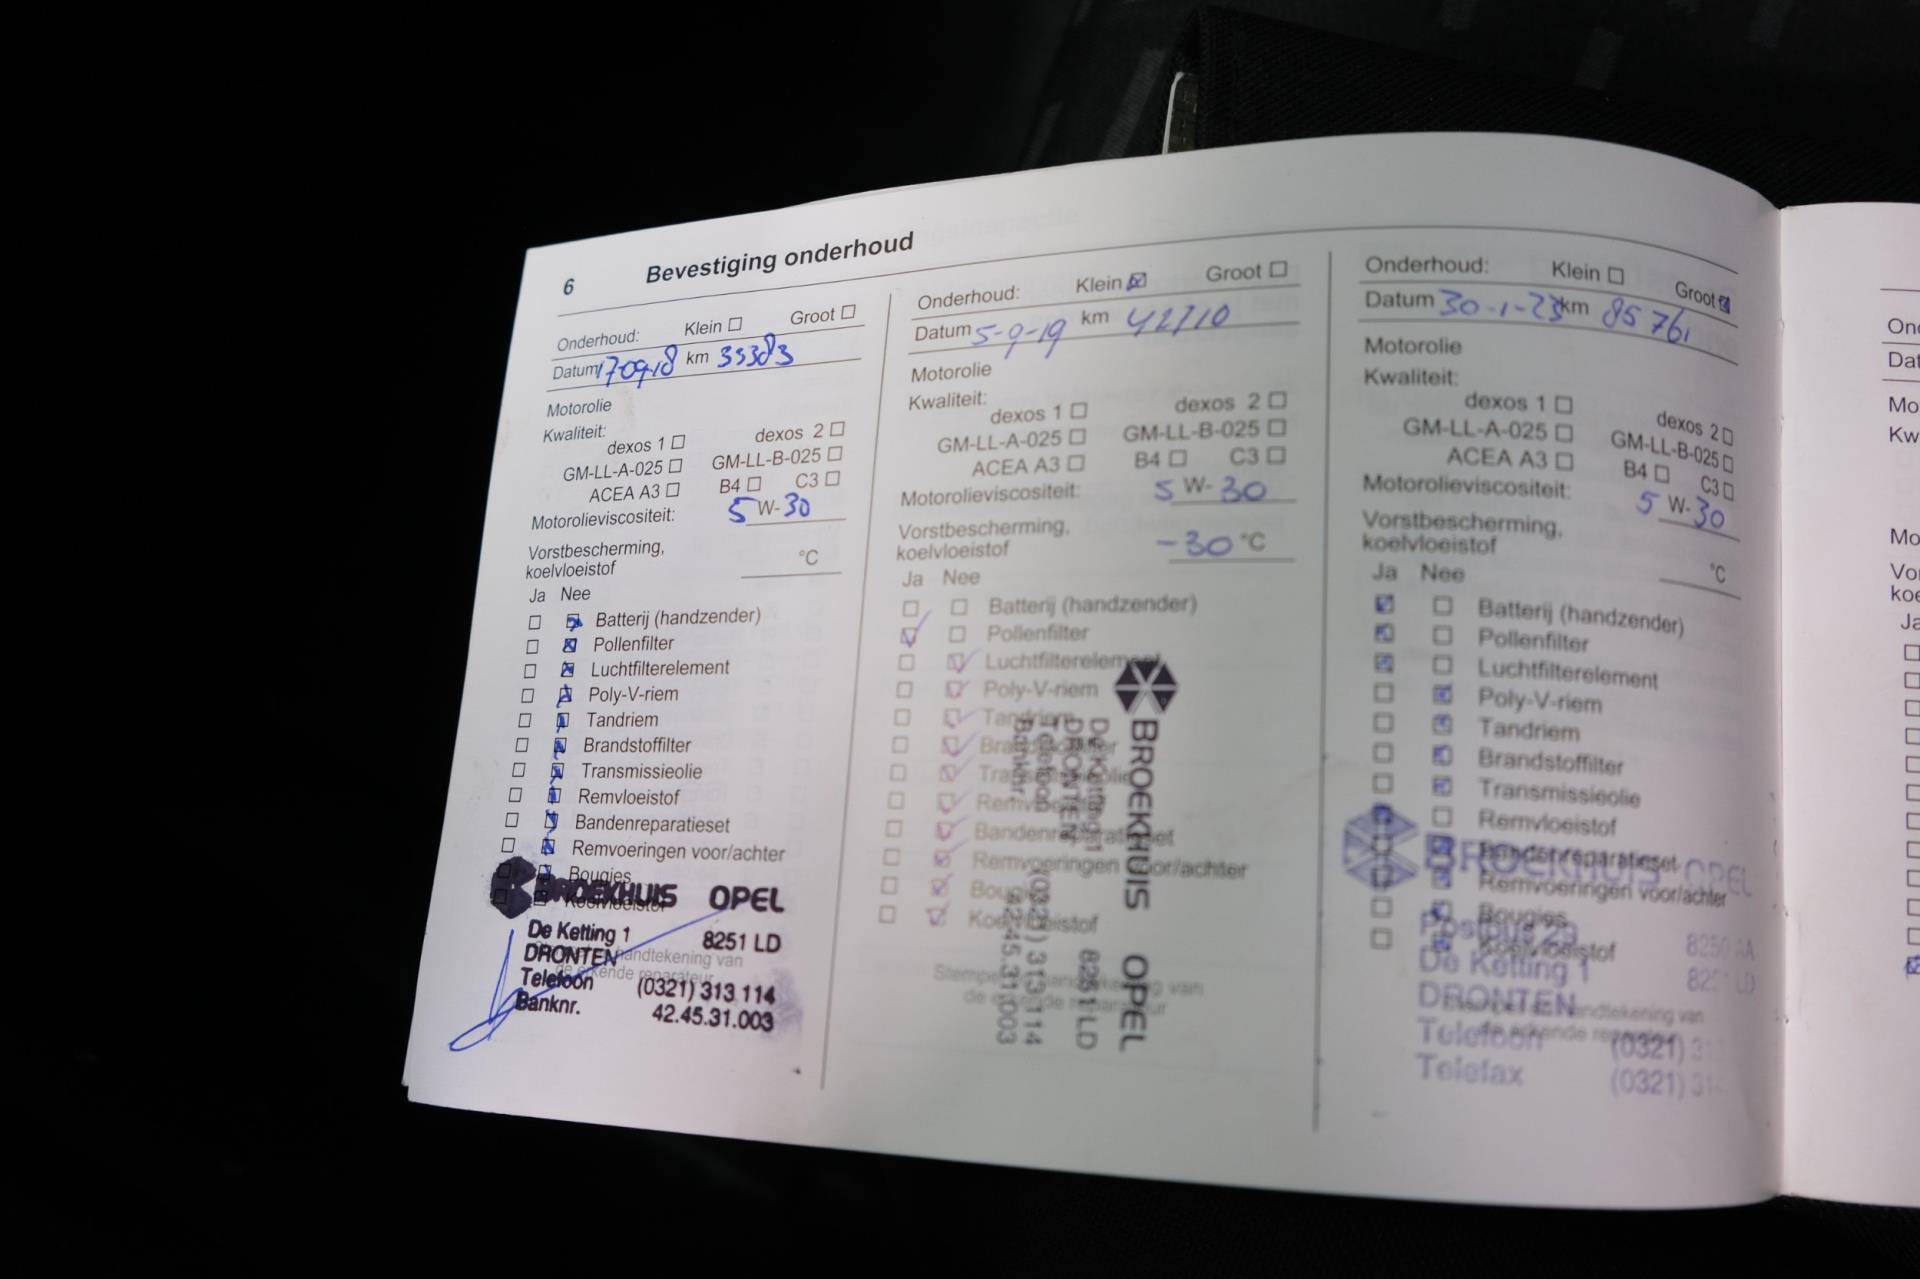 6 Bevestiging onderhoud
Onderhoud: Klein Groot
Datum 17-09-18 km 33383
Motorolie
Kwaliteit:
dexos 1 dexos 2
GM-LL-A-025 GM-LL-B-025
ACEA A3 B4 C3
Motorolieviscositeit: 5 W-30
Vorstbescherming,
koelvloeistof °C
Ja Nee
Batterij (handzender)
Pollenfilter
Luchtfilterelement
Poly-V-riem
Tandriem
Brandstoffilter
Transmissieolie
Remvloeistof
Bandenreparatieset
Remvoeringen voor/achter
Bougies
Koelvloeistof
BROEKHUIS OPEL
De Ketting 1 8251 LD
DRONTEN
handtekening van
de erkende reparateur
Telefoon (0321) 313 114
Banknr. 42.45.31.003
Onderhoud: Klein Groot
Datum 5-9-19 km 42710
Motorolie
Kwaliteit:
dexos 1 dexos 2
GM-LL-A-025 GM-LL-B-025
ACEA A3 B4 C3
Motorolieviscositeit: 5 W-30
Vorstbescherming,
koelvloeistof -30 °C
Ja Nee
Batterij (handzender)
Pollenfilter
Luchtfilterelement
Poly-V-riem
Tandriem
Brandstoffilter
Transmissieolie
Remvloeistof
Bandenreparatieset
Remvoeringen voor/achter
Bougies
Koelvloeistof
Stempel handtekening van
de erkende reparateur
BROEKHUIS OPEL
De Ketting 1 8251 LD
DRONTEN
Telefoon (0321) 313 114
Banknr. 42.45.31.003
Onderhoud: Klein Groot
Datum 30-1-23 km 85761
Motorolie
Kwaliteit:
dexos 1 dexos 2
GM-LL-A-025 GM-LL-B-025
ACEA A3 B4 C3
Motorolieviscositeit: 5 W-30
Vorstbescherming,
koelvloeistof °C
Ja Nee
Batterij (handzender)
Pollenfilter
Luchtfilterelement
Poly-V-riem
Tandriem
Brandstoffilter
Transmissieolie
Remvloeistof
Bandenreparatieset
Remvoeringen voor/achter
Bougies
Koelvloeistof
BROEKHUIS OPEL
Postbus 29 8250 AA
De Ketting 1 8251 LD
DRONTEN
handtekening van
de erkende reparateur
Telefoon (0321) 31
Telefax (0321) 31
Ond
Dat
Mo
Kw
Mo
Vor
koe
Ja